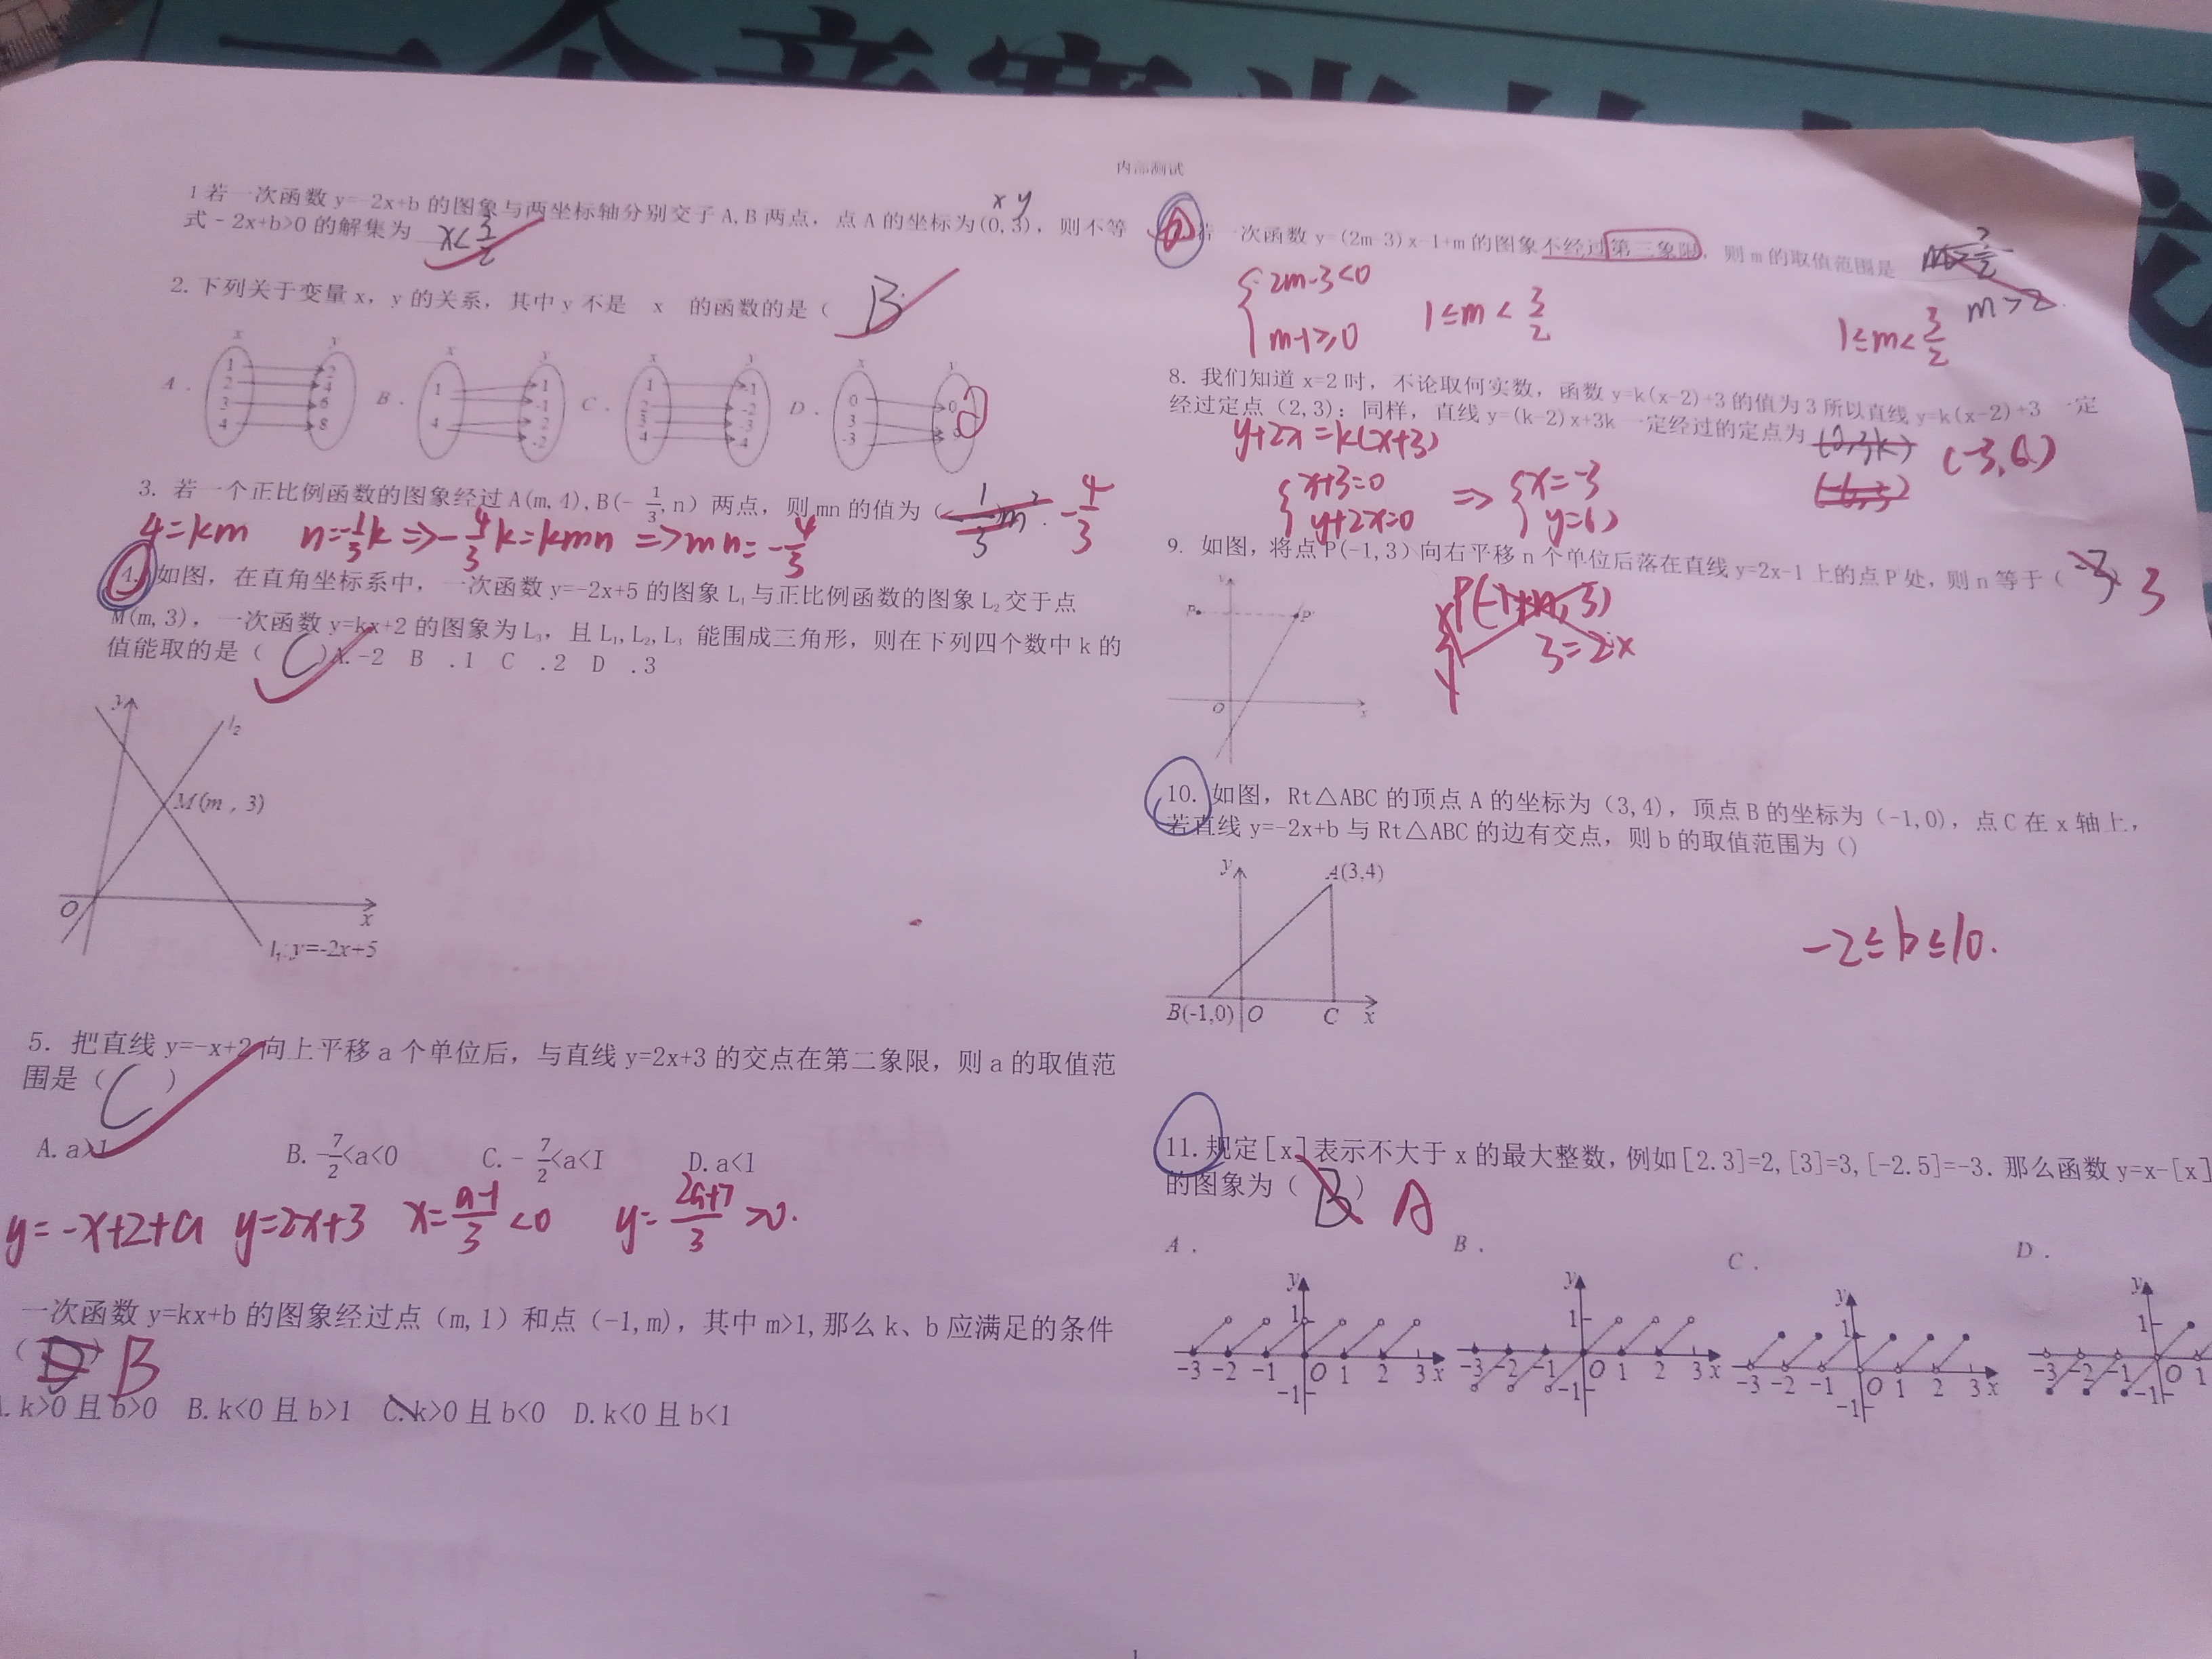 内部测试
1 若一次函数 y=-2x+b 的图象与两坐标轴分别交于 A,B 两点，点 A 的坐标为(0,3)，则不等
x y
式﹣2x+b>0 的解集为 x<3/2
2. 下列关于变量 x，y 的关系，其中 y 不是 x 的函数的是（ B
A . B . C . D .
x y x y x y x y
1 2 3 4
2 4 6 8
1 4
1 -1 2 -2
1 2 3 4
-1 -2 -3 -4
0 3 -3
0
3. 若一个正比例函数的图象经过 A(m,4),B(- 1/3,n) 两点，则 mn 的值为（ -4/3
4=km n=-1/3k ⇒ -4/3k=kmn ⇒ mn=-4/3
4. 如图，在直角坐标系中，一次函数 y=-2x+5 的图象 L₁ 与正比例函数的图象 L₂ 交于点
M(m,3)，一次函数 y=kx+2 的图象为 L₃，且 L₁,L₂,L₃ 能围成三角形，则在下列四个数中 k 的
值能取的是（ C ）A.-2 B .1 C .2 D .3
y
l₂
M(m , 3)
O x
l₁: y=-2x+5
5. 把直线 y=-x+2 向上平移 a 个单位后，与直线 y=2x+3 的交点在第二象限，则 a 的取值范
围是（ C ）
A.a>1 B.-7/2<a<0 C.- 7/2<a<1 D.a<1
y=-x+2+a y=2x+3 x=(a-1)/3<0 y=(2a+7)/3>0.
一次函数 y=kx+b 的图象经过点（m,1）和点（-1,m）,其中 m>1,那么 k、b 应满足的条件
（ D ） B
.k>0 且 b>0 B.k<0 且 b>1 C.k>0 且 b<0 D.k<0 且 b<1
若一次函数 y=(2m-3)x-1+m 的图象不经过第三象限，则 m 的取值范围是
m>2
2m-3<0
m-1≥0
1≤m<3/2
1≤m<3/2
8. 我们知道 x=2 时，不论取何实数，函数 y=k(x-2)+3 的值为 3 所以直线 y=k(x-2)+3 一定
经过定点（2,3）；同样，直线 y=(k-2)x+3k 一定经过的定点为 (0,3k) (-3,6)
y+2x=k(x+3)
x+3=0
y+2x=0
⇒
x=-3
y=6
9. 如图,将点 P(-1,3) 向右平移 n 个单位后落在直线 y=2x-1 上的点 P 处,则 n 等于（ 3
P(-1+n,3)
3=2x
y
P P'
O x
10. 如图，Rt△ABC 的顶点 A 的坐标为（3,4），顶点 B 的坐标为（-1,0），点 C 在 x 轴上，
若直线 y=-2x+b 与 Rt△ABC 的边有交点，则 b 的取值范围为（）
y A(3,4)
B(-1,0) O C x
-2≤b≤10.
11. 规定[x]表示不大于 x 的最大整数,例如[2.3]=2,[3]=3,[-2.5]=-3. 那么函数 y=x-[x]
的图象为（ B ） A
A . B . C . D .
y 1 -3 -2 -1 O 1 2 3 x -1
y 1 -3 -2 -1 O 1 2 3 x -1
y 1 -3 -2 -1 O 1 2 3 x -1
y 1 -3 -2 -1 O 1 -1
1